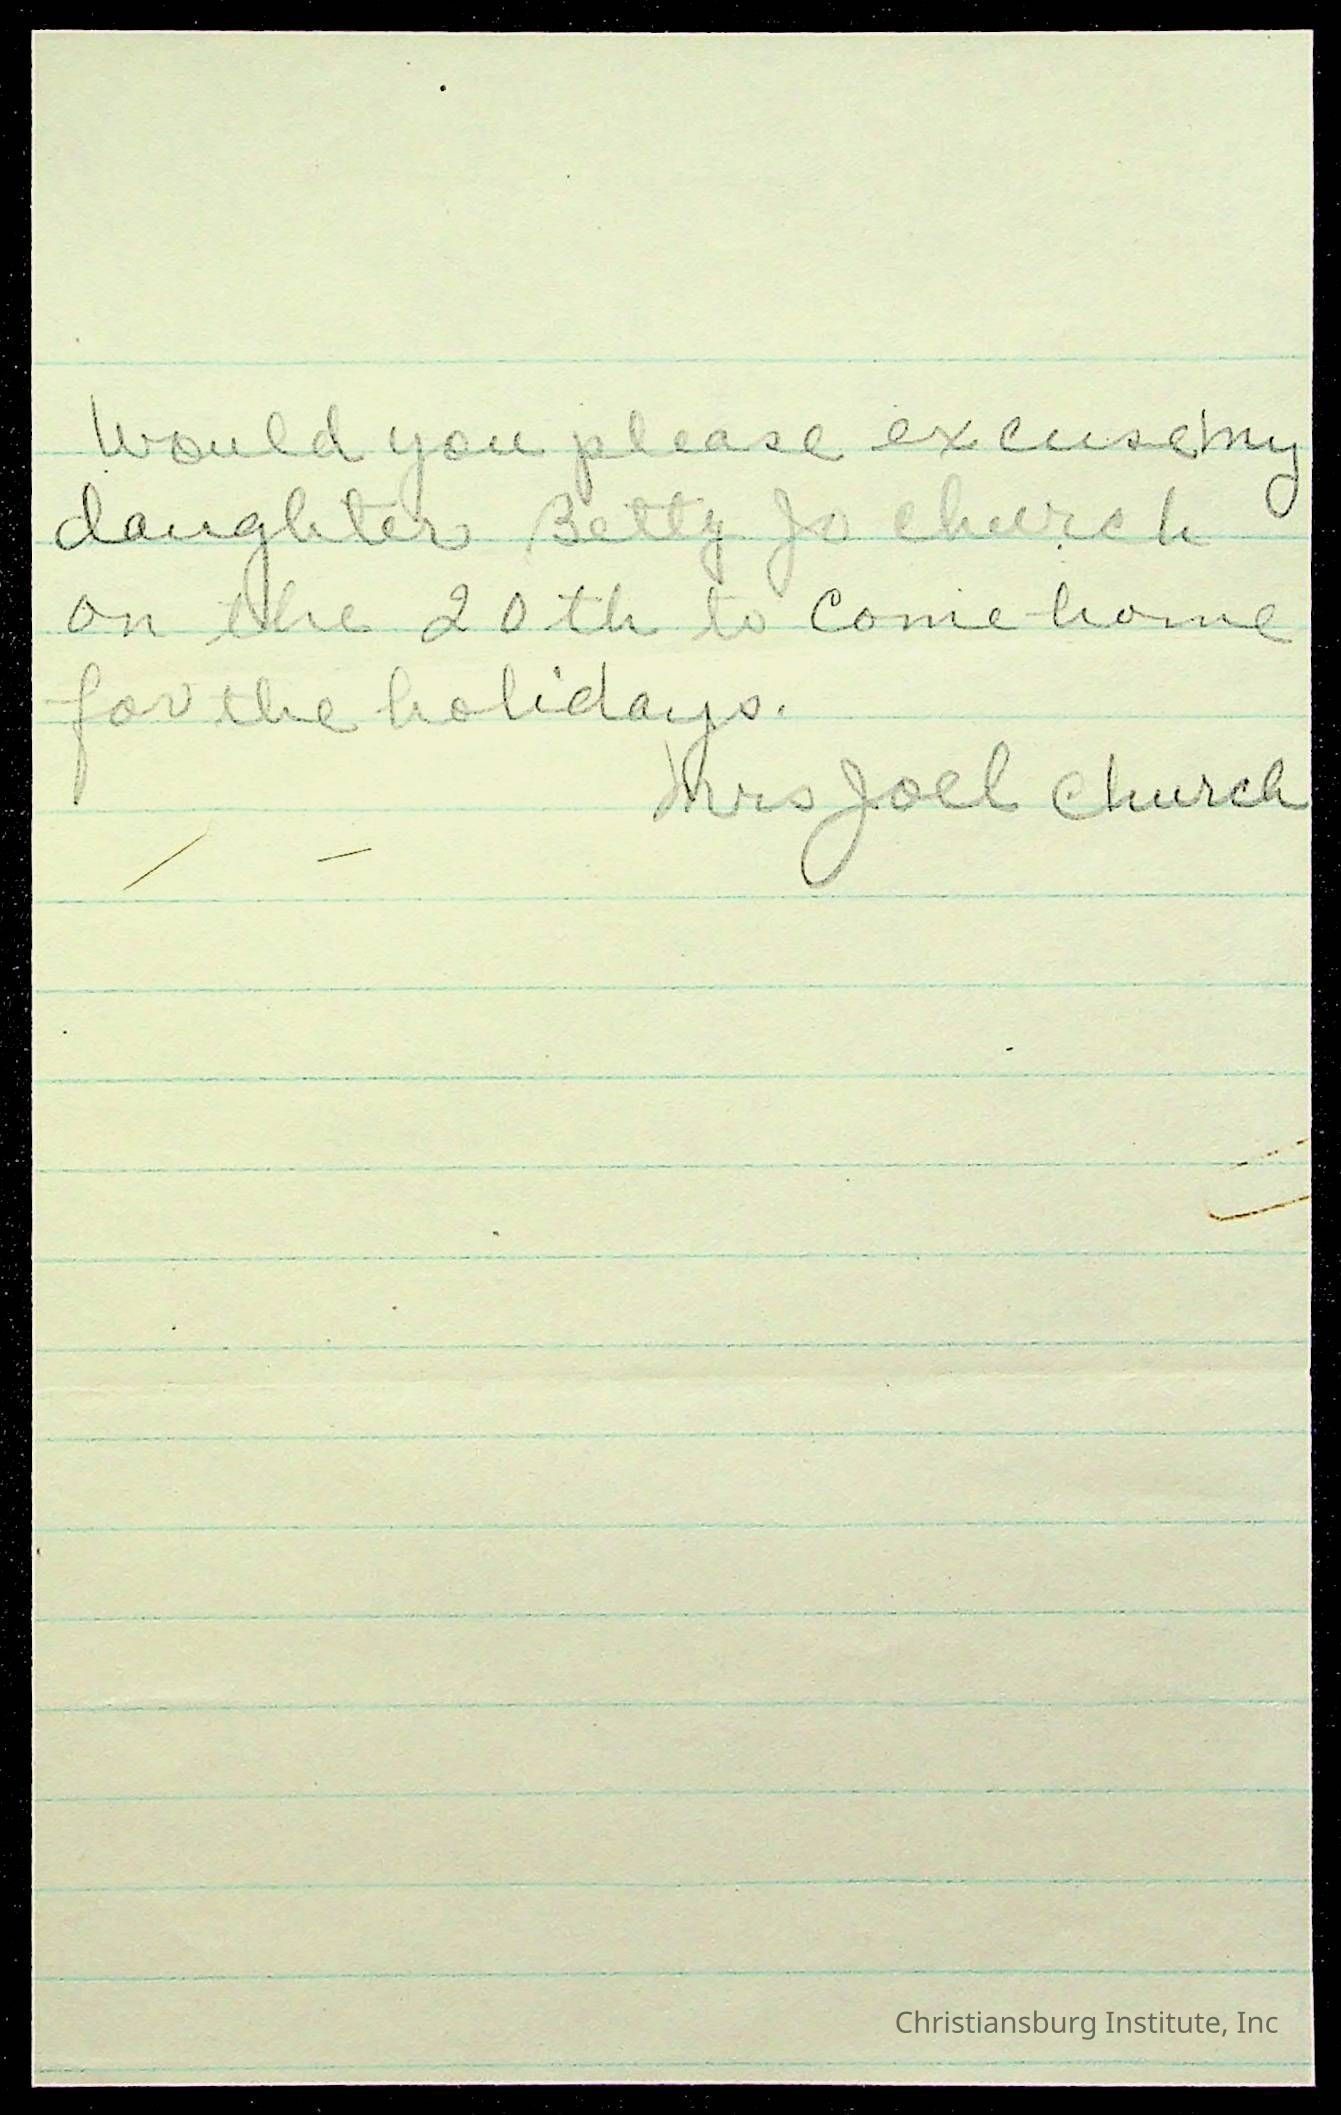 Would you please excuse my
daughter Betty Jo church
on the 20th to come home
for the holidays.
Mrs Joel church
Christiansburg Institute, Inc